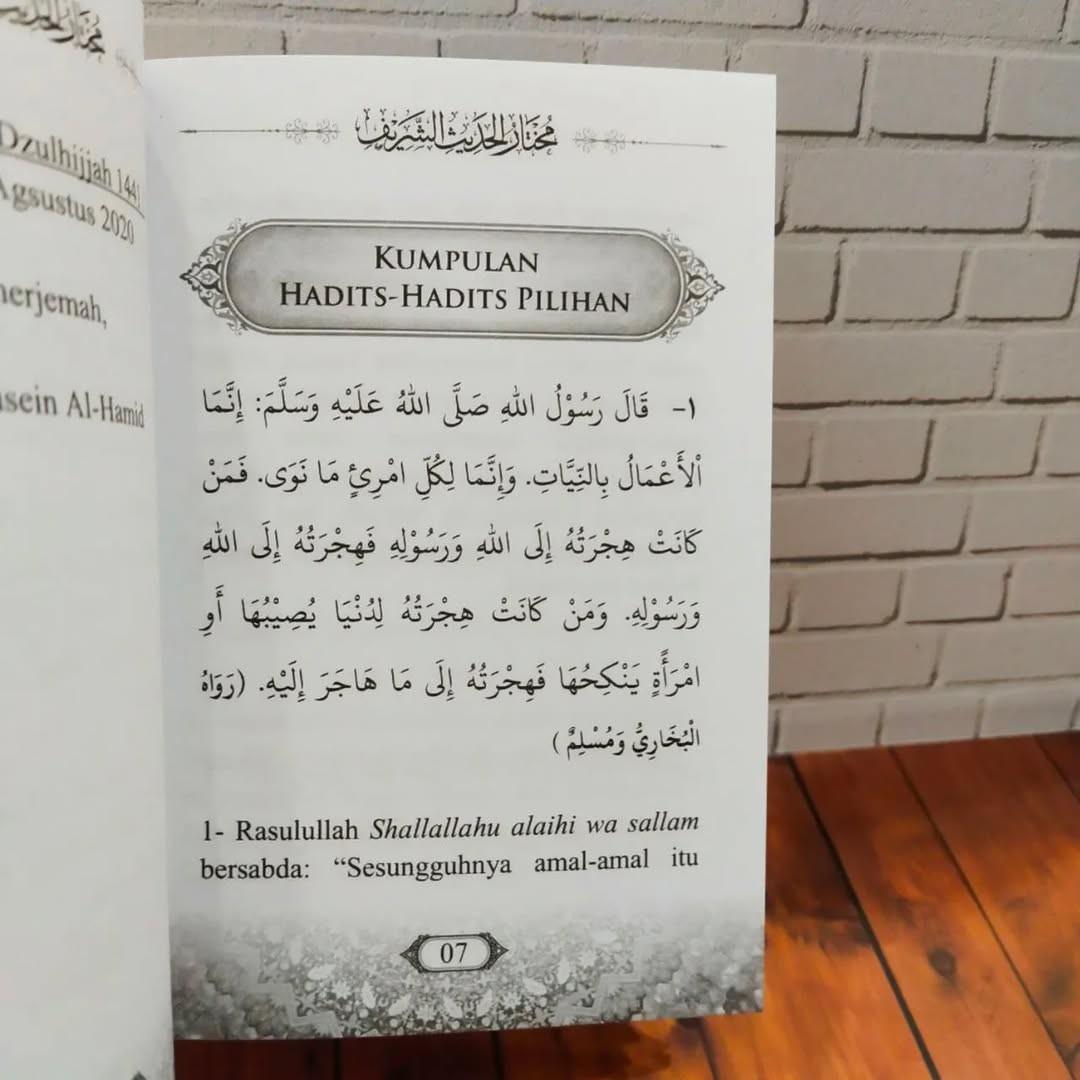 Dzulhijjah 1441
Agsustus 2020
nerjemah,
sein Al-Hamid
مُخْتَارُ الْحَدِيْثِ الشَّرِيْفِ
KUMPULAN
HADITS-HADITS PILIHAN
١- قَالَ رَسُوْلُ اللهِ صَلَّى اللهُ عَلَيْهِ وَسَلَّمَ: إِنَّمَا
اْلأَعْمَالُ بِالنِّيَّاتِ. وَإِنَّمَا لِكُلِّ امْرِئٍ مَا نَوَى. فَمَنْ
كَانَتْ هِجْرَتُهُ إِلَى اللهِ وَرَسُوْلِهِ فَهِجْرَتُهُ إِلَى اللهِ
وَرَسُوْلِهِ. وَمَنْ كَانَتْ هِجْرَتُهُ لِدُنْيَا يُصِيْبُهَا أَوِ
امْرَأَةٍ يَنْكِحُهَا فَهِجْرَتُهُ إِلَى مَا هَاجَرَ إِلَيْهِ. (رَوَاهُ
الْبُخَارِيُّ وَمُسْلِمٌ)
1- Rasulullah Shallallahu alaihi wa sallam
bersabda: “Sesungguhnya amal-amal itu
07